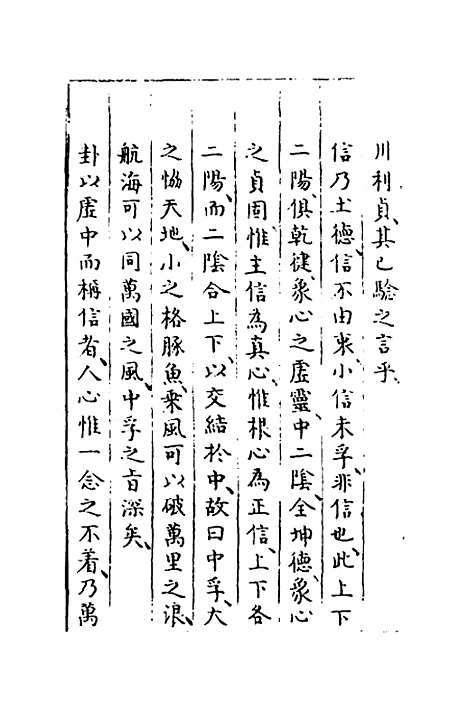 川利貞其已驗之言乎
信乃土德信不由衷小信未孚非信也此上下
二陽俱乾健象心之虛靈中二陰全坤德象心
之貞固惟主信為真心惟根心為正信上下各
二陽而二陰合上下以交結於中故曰中孚大
之恊天地小之格豚魚乗風可以破萬里之浪
航海可以同萬國之風中孚之㫖深矣
卦以虛中而稱信者人心惟一念之不着乃萬